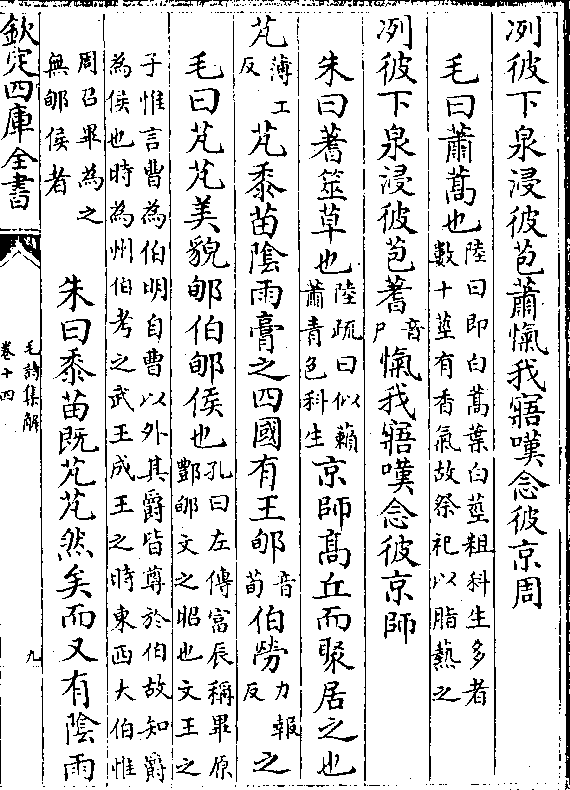 冽彼下泉浸彼苞蕭愾我寤嘆念彼京周
毛曰蕭蒿也陸曰即白蒿葉白莖粗科生多者
數十莖有香氣故祭祀以脂爇之
冽彼下泉浸彼苞蓍音尸愾我寤嘆念彼京師
朱曰蓍筮草也陸疏曰似藾
蕭青色科生京師髙丘而聚居之也
芃薄工反芃黍苗陰雨膏之四國有王郇音荀伯勞力報反之
毛曰芃芃美貌郇伯郇侯也孔曰左傳富辰稱畢原
酆郇文之昭也文王之
子惟言曹為伯明自曹以外其爵皆尊於伯故知爵
為侯也時為州伯考之武王成王之時東西大伯惟
周召畢為之
無郇侯者
朱曰黍苗既芃芃然矣而又有陰雨
欽定四庫全書
毛詩集解
卷十四
九